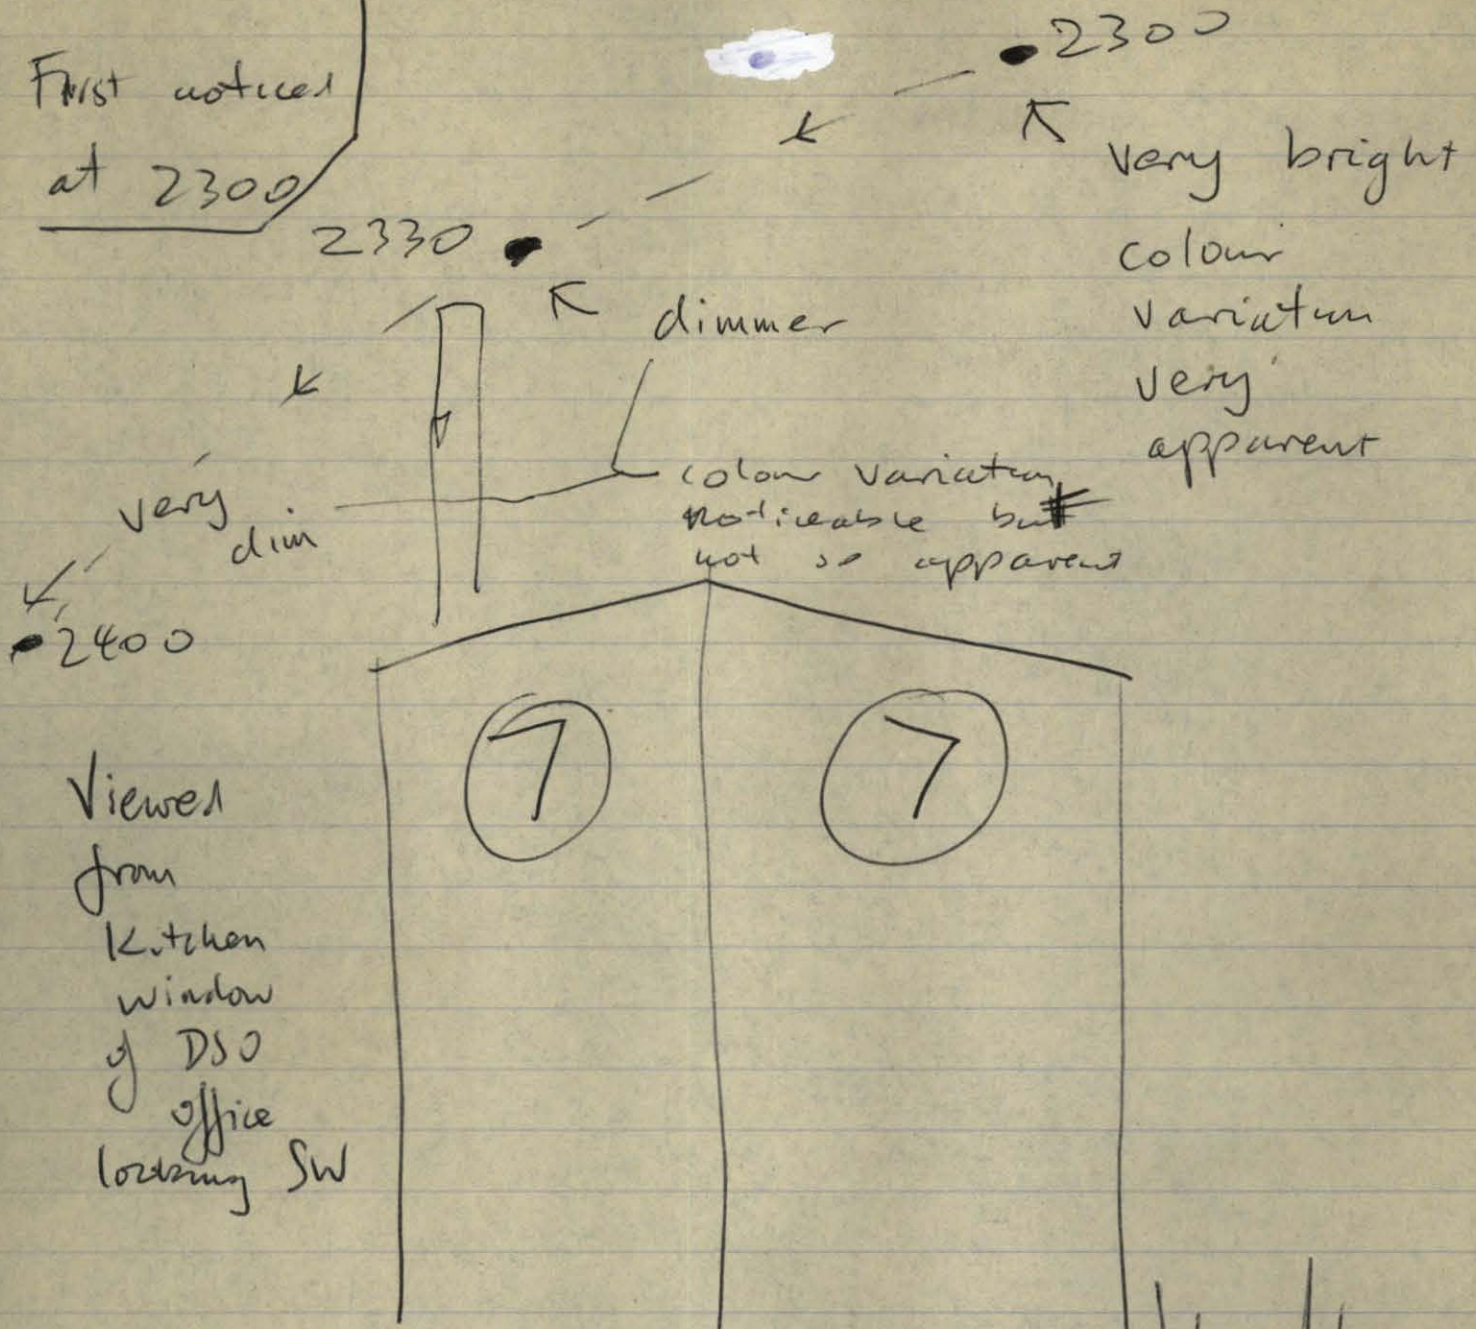 First noticed
at 2300
2300
very bright
colour
variation
very
apparent
2330
dimmer
colour variation
noticeable but
not so apparent
very
dim
2400
7
7
Viewed
from
Kitchen
window
of DSO
office
looking SW